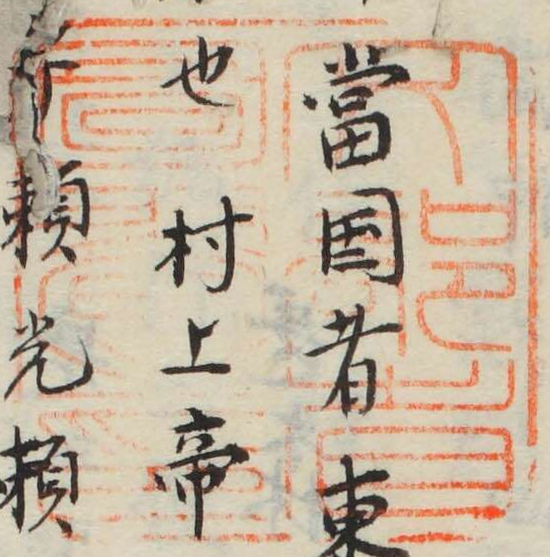 當国者東
也村上帝
頼光頼